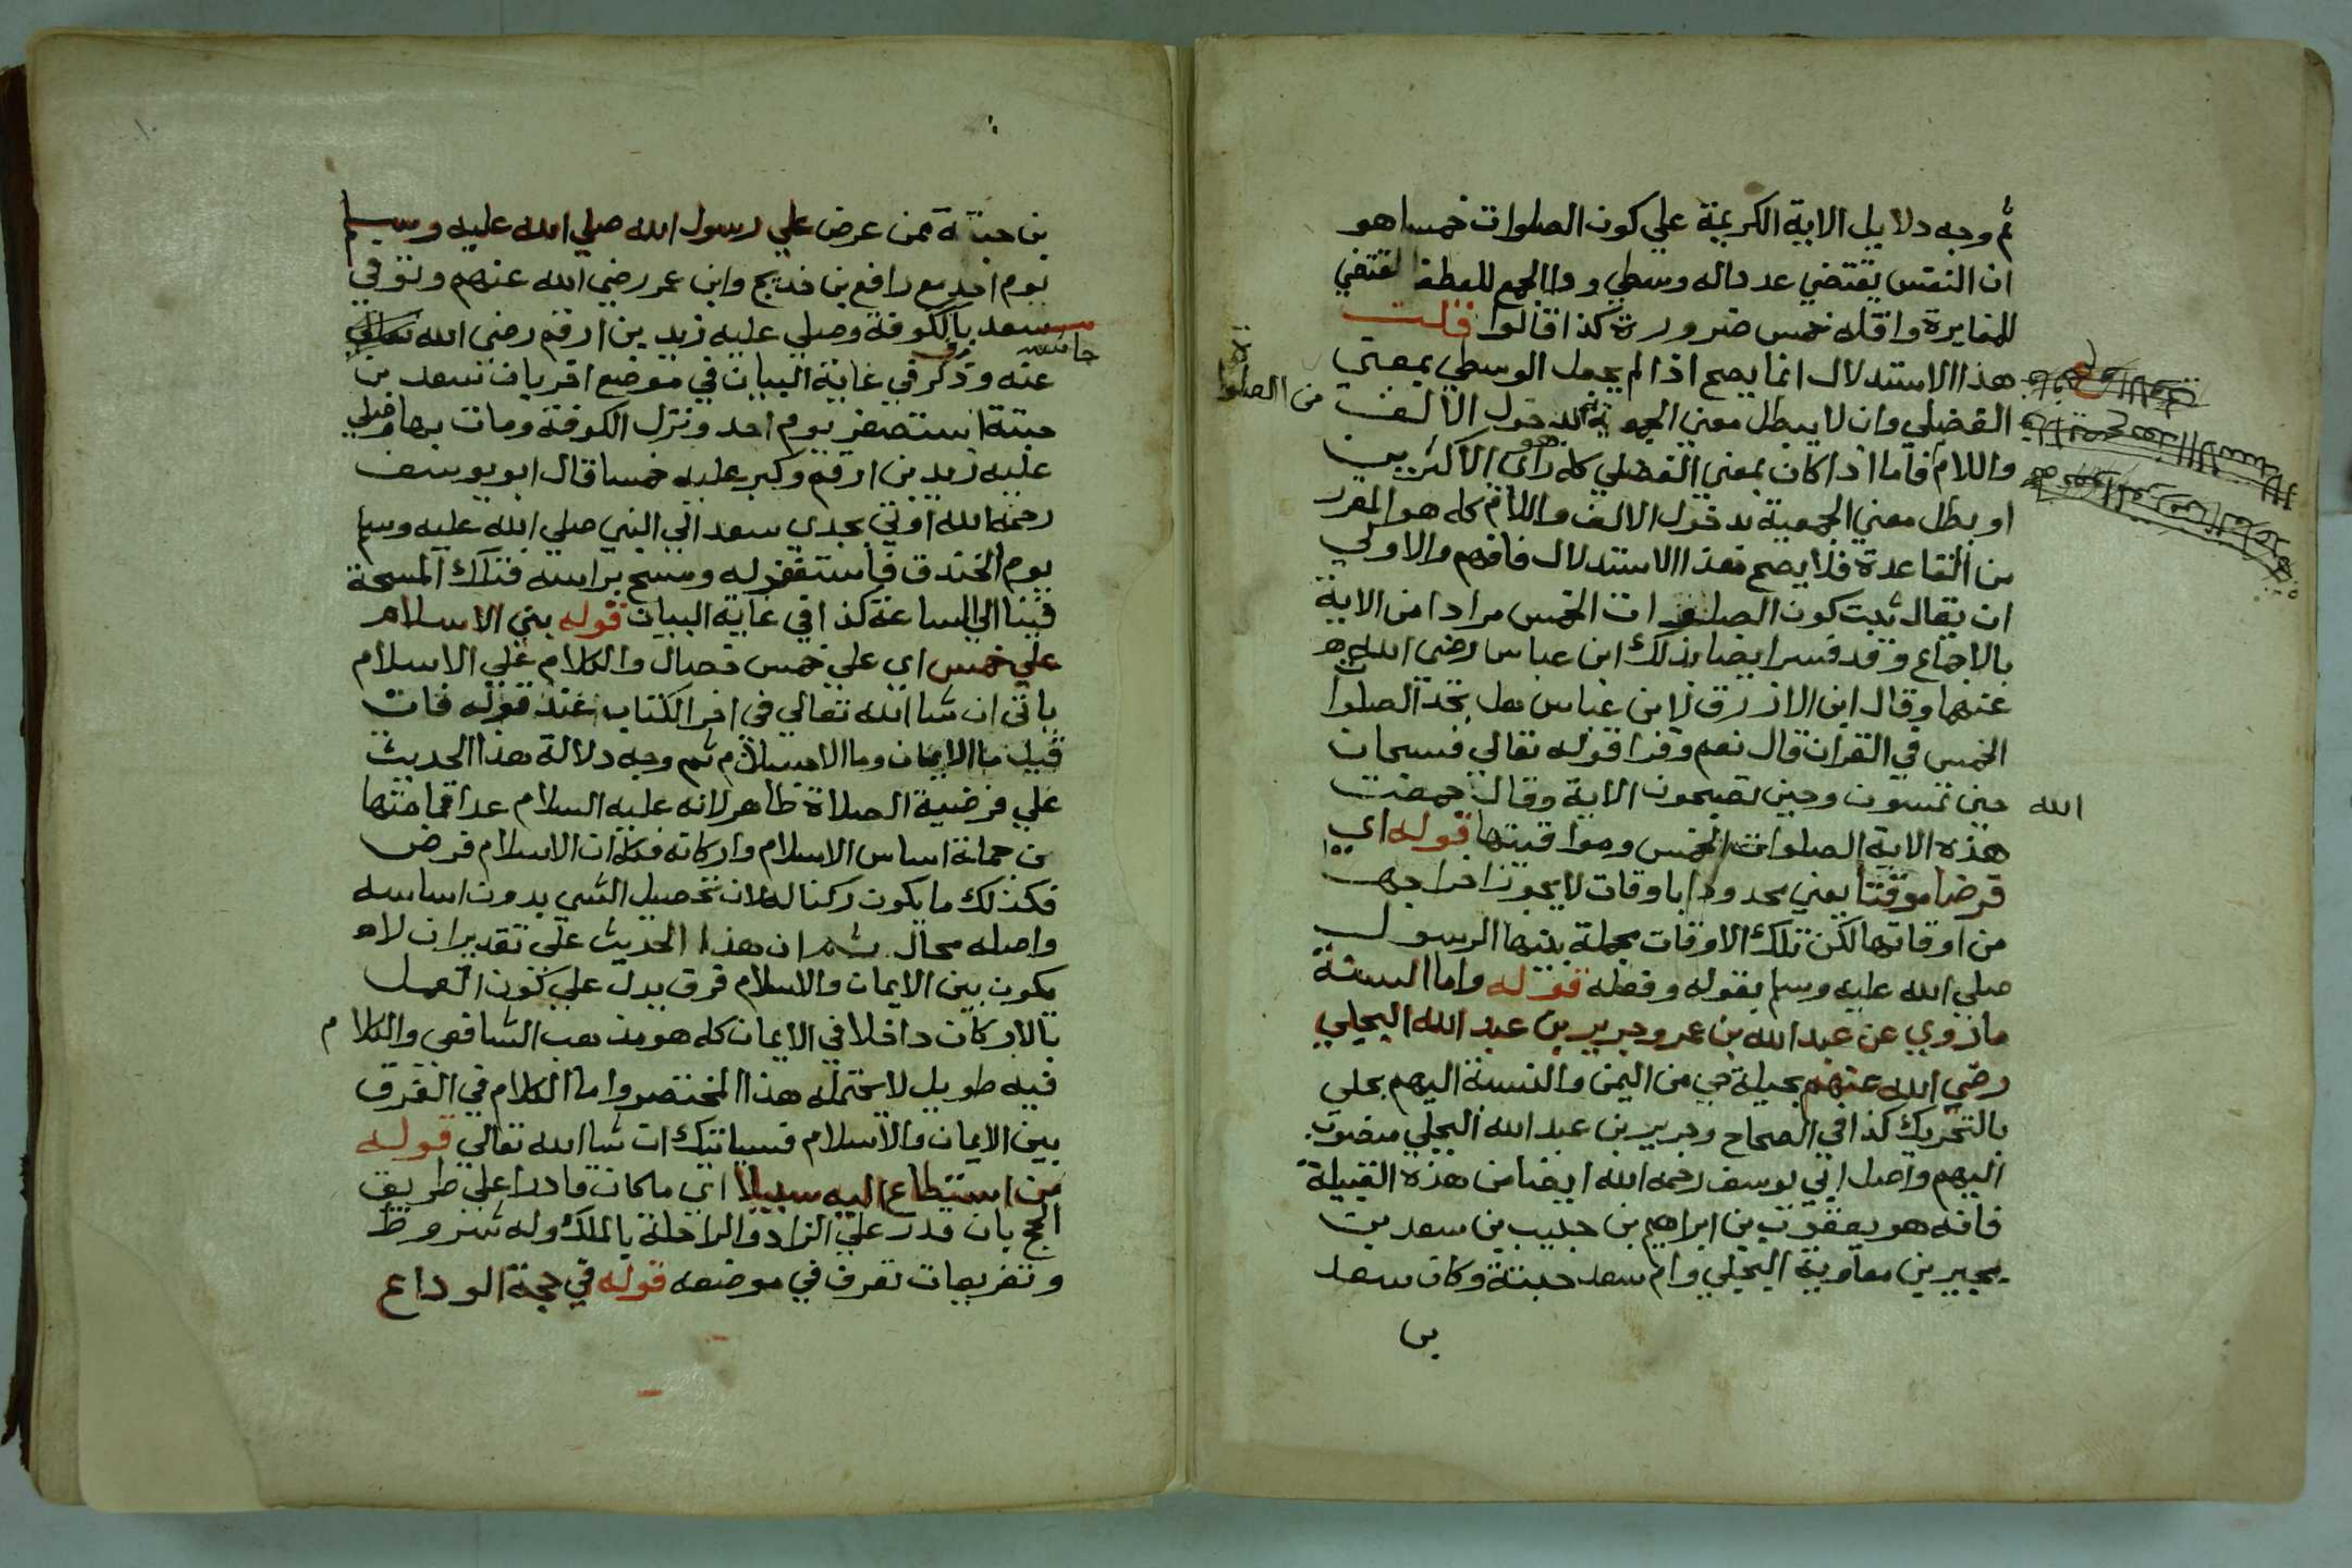 ثم وجه دلايل الاية الكريمة علي كون الصلوات خمسا هو
ان النص يقتضي عدداله وسطي وواالجمع للعطف المقتضي
للمغايرة واقله خمس ضرورة كذا قالوا قلت
هذا الاستدلال انما يصح اذا لم يجعل الوسطي بمعني
الفضلي وان لا يبطل معني الجمعية بدخول الالف
من الصلوات
واللام فاما اذا كان بمعني الفضلي كله هو راي الاكثرين
او بطل معني الجمعية بدخول الالف واللام كله هو المقرر
من القاعدة فلا يصح هذا الاستدلال فافهم والاولي
ان يقال ثبت كون الصلوات الخمس مرادا من الاية
بالاجماع وقد فسر ايضا بذلك ابن عباس رضي الله
عنهما وقال ابن الازرق لابن عباس هل تجد الصلوات
الخمس في القران قال نعم وقرا قوله تعالي فسبحان
الله حين تمسون وحين تصبحون الاية وقال جمعت
هذه الاية الصلوات الخمس ومواقيتها قوله اي
فرضا موقتا يعني محدودا باوقات لا يجوز اخراجها
من اوقاتها لكن تلك الاوقات مجملة بينها الرسول
صلي الله عليه وسلم بقوله وفعله قوله واما السنة
ما روي عن عبد الله بن عمر وجرير بن عبد الله البجلي
رضي الله عنهم بجيلة حي من اليمن والنسبة اليهم بجلي
بالتحريك كذا في الصحاح وجرير بن عبد الله البجلي منصوب
اليهم واصل ابي يوسف رحمه الله ايضا من هذه القبيلة
فانه هو يعقوب بن ابراهيم بن حبيب بن سعد بن
بجير بن معاوية البجلي وام سعد حبتة وكان سعد
بن
بن حبتة ممن عرض علي رسول الله صلي الله عليه وسلم
يوم احد مع رافع بن خديج وابن عمر رضي الله عنهم وتوفي
سعد بالكوفة وصلي عليه زيد بن ارقم رضي الله تعالي
عنه وذكر في غاية البيان في موضع اخر بان سعد بن
حبتة استصغر يوم احد ونزل الكوفة ومات بها وصلي
عليه زيد بن ارقم وكبر عليه خمسا قال ابو يوسف
رحمه الله اوتي بجدي سعد الي النبي صلي الله عليه وسلم
يوم الخندق فاستغفر له ومسح براسه فتلك المسحة
فينا الي الساعة كذا في غاية البيان قوله بني الاسلام
علي خمس اي علي خمس خصال والكلام علي الاسلام
ياتي ان شا الله تعالي في اخر الكتاب عند قوله فان
قيل ما الايمان وما الاسلام ثم وجه دلالة هذا الحديث
علي فرضية الصلاة ظاهر لانه عليه السلام عد اقامتها
من جملة اساس الاسلام واركانه فكما ان الاسلام فرض
فكذلك ما يكون ركنا له لان تحصيل الشي بدون اساسه
واصله محال ثم ان هذا الحديث علي تقدير ان لا
يكون بين الايمان والاسلام فرق يدل علي كون العمل
بالاركان داخلا في الايمان كله هو مذهب الشافعي والكلام
فيه طويل لا يحتمله هذا المختصر واما الكلام في الفرق
بين الايمان والاسلام فسياتيك ان شا الله تعالي قوله
من استطاع اليه سبيلا اي ما كان قادرا علي طريق
الحج بان قدر علي الزاد والراحلة بالملك وله شروط
وتفريعات تعرف في موضعه قوله في حجة الوداع